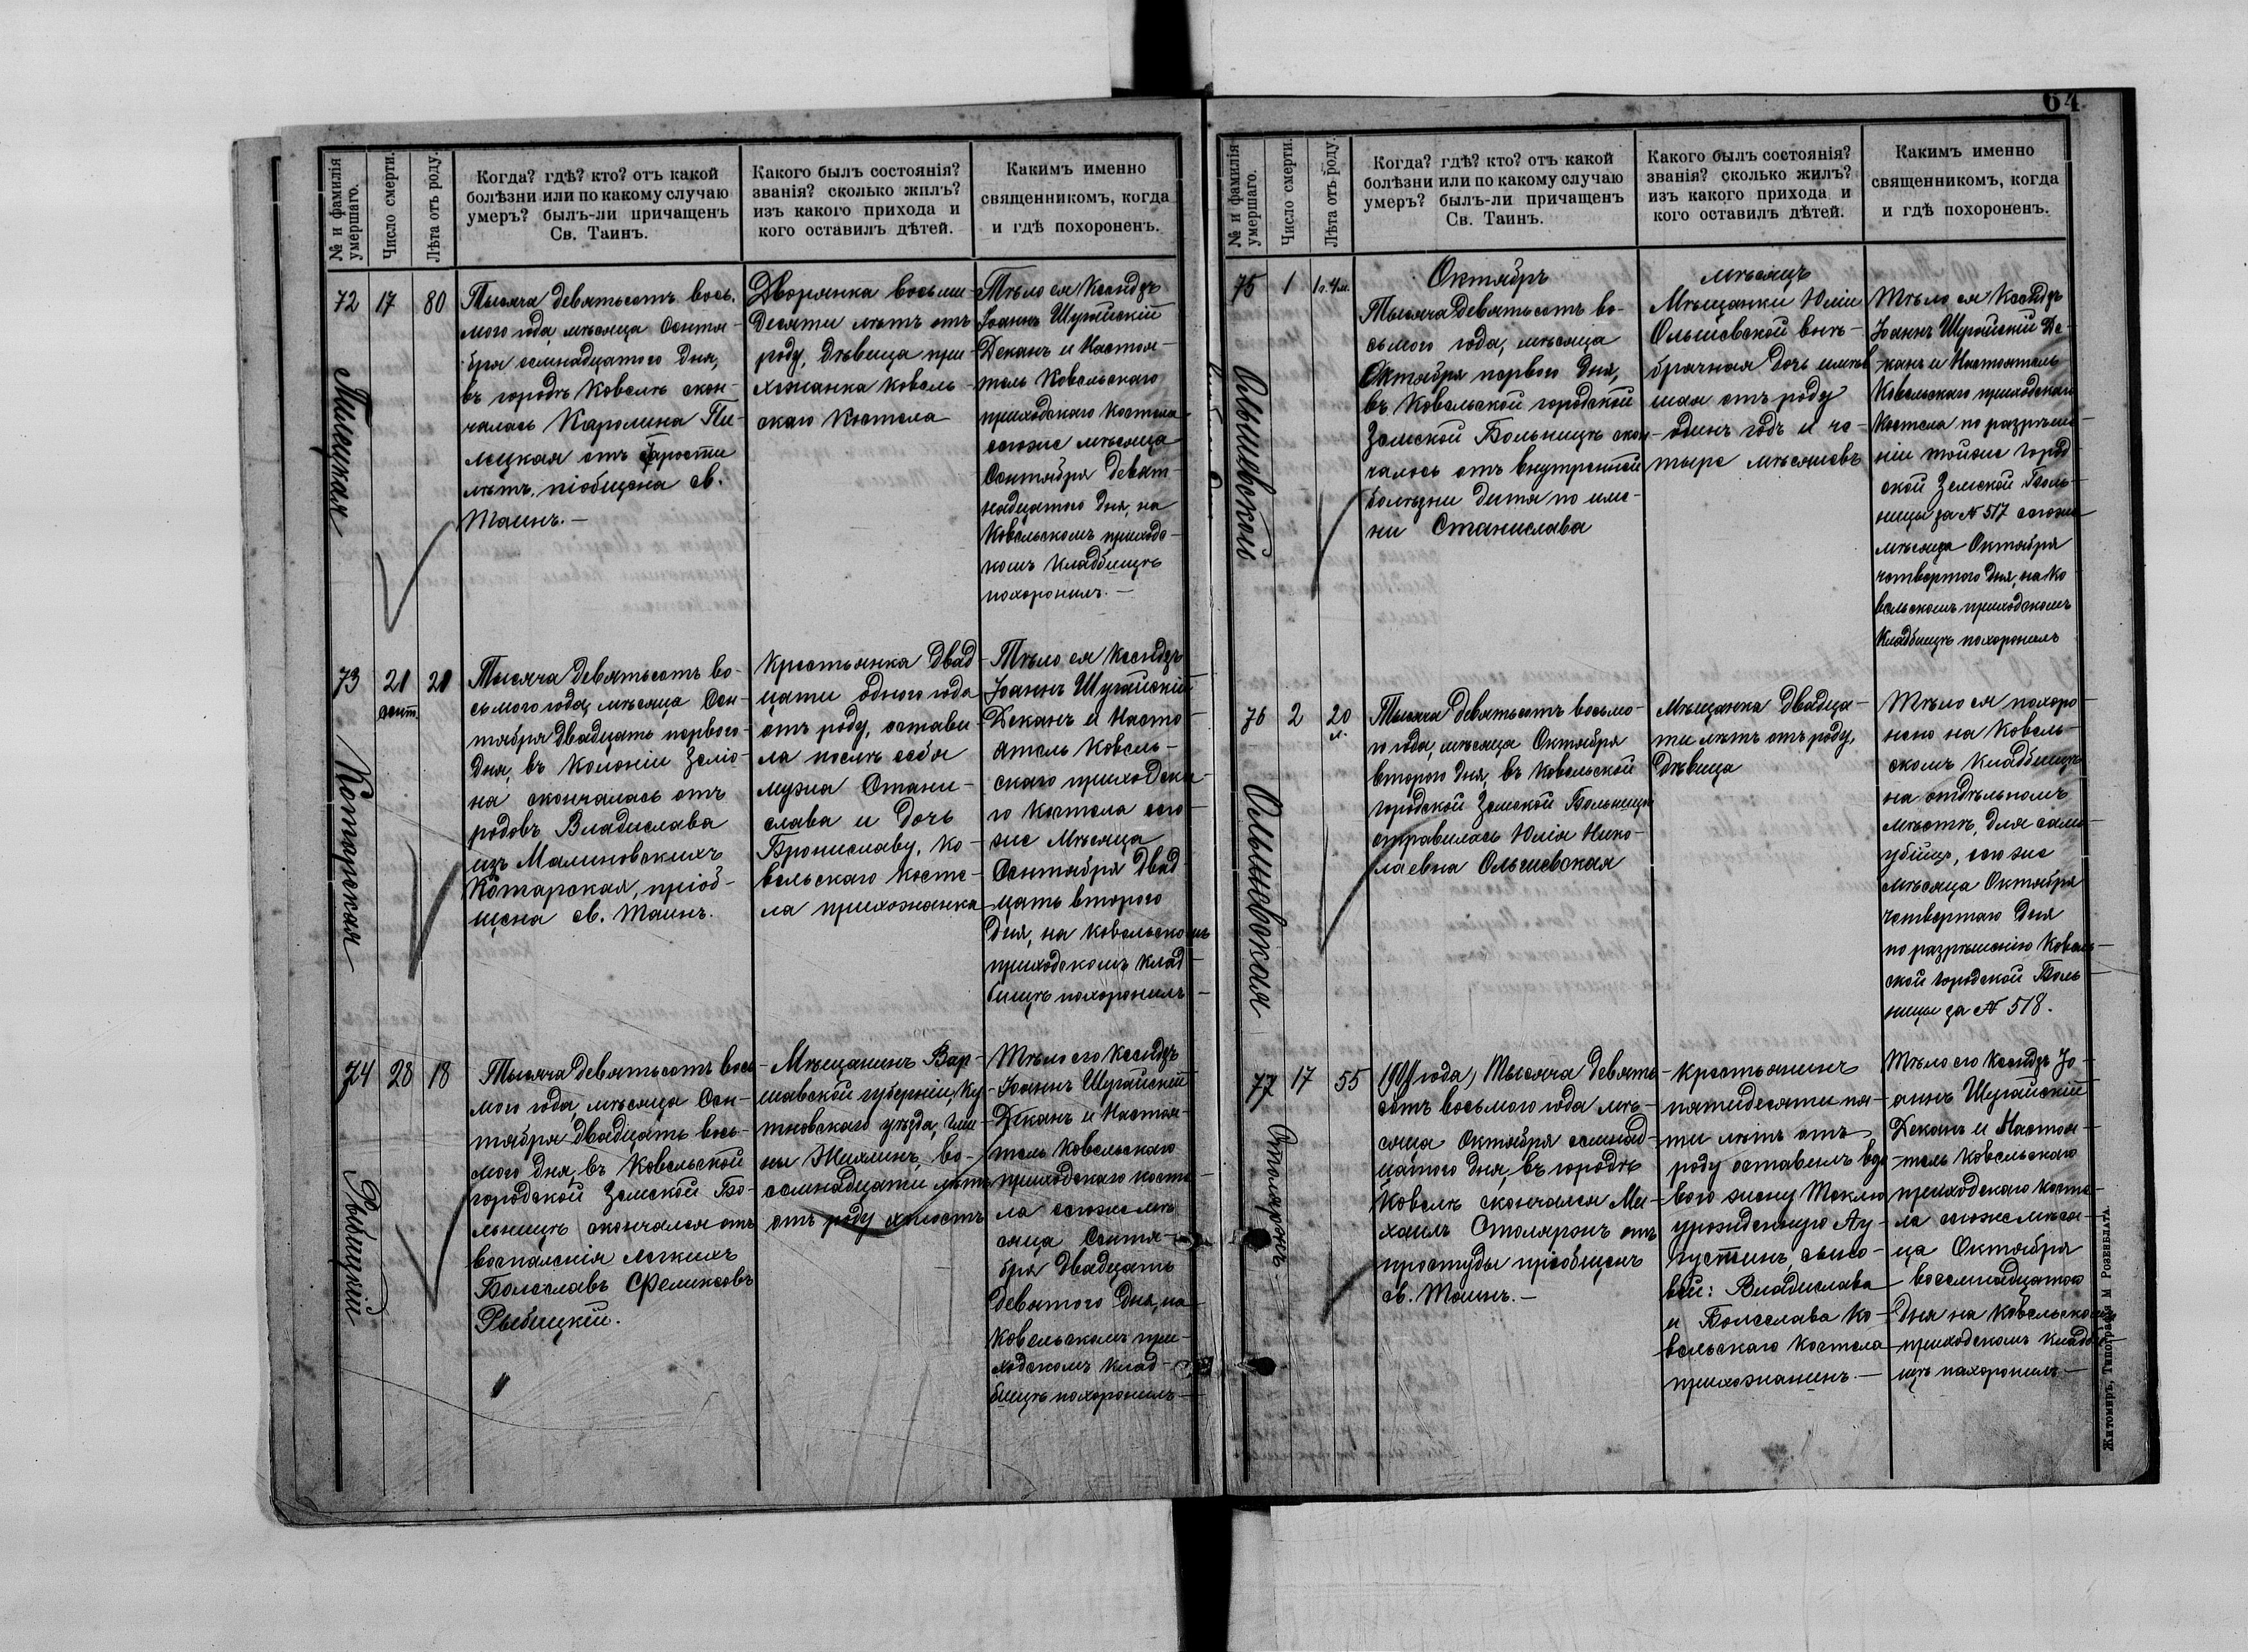 64
№ и фамилія
умершаго.
Число смерти.
Лѣта отъ роду.
Когда? гдѣ? кто? отъ какой
болѣзни или по какому случаю
умеръ? былъ-ли причащенъ
Св. Таинъ.
Какого былъ состоянія?
званія? сколько жилъ?
изъ какого прихода и
кого оставилъ дѣтей.
Какимъ именно
священникомъ, когда
и гдѣ похороненъ.
72
17
80
Тысяча девятьсотъ вось-
мого года, мѣсяца Сентя-
бря семнадцатого дня,
въ городѣ Ковелѣ скон-
чалась Каролина Пи-
лецкая отъ старости
лѣтъ, пріобщена св.
Таинъ. —
Дворянка восьми-
десяти лѣтъ отъ
роду, дѣвица при-
хожанка Ковель-
скаго Костела
Тѣло ея Ксендзъ
Іоаннъ Шугайскій
Деканъ и Настоя-
тель Ковельскаго
приходскаго Костела
сегоже мѣсяца
Сентября девят-
надцатого дня, на
Ковельскомъ приходс-
комъ кладбищѣ
похоронилъ. —
Пилецкая
73
21
сент.
21
Тысяча девятьсотъ во-
сьмого года, мѣсяца Сен-
тября двадцать первого
дня, въ колоніи Зеліо-
на скончалась отъ
родовъ Владислава
изъ Малиновскихъ
Котарская, пріоб-
щена св. Таинъ.
Крестьянка двад-
цати одного года
отъ роду, остави-
ла послѣ себя
мужа Стани-
слава и дочь
Брониславу, Ко-
вельскаго косте-
ла прихожанка
Тѣло ея Ксендзъ
Іоаннъ Шугайскій
Деканъ и Насто-
ятель Ковель-
скаго приходска-
го костела сего-
же мѣсяца
Сентября двад-
цать второго
дня, на Ковельскомъ
приходскомъ клад-
бищѣ похоронилъ —
Котарская
74
28
18
Тысяча девятьсотъ вось-
мого года, мѣсяца Сен-
тября двадцать вось-
мого дня, въ Ковельской
городской Земской Бо-
льницѣ скончался отъ
воспаленія легкихъ
Болеславъ Феликсовъ
Рыбицкій.
Мѣщанинъ Вар-
шавской губерніи, Ку-
тновскаго уѣзда, гми-
ны Жихлинъ, во-
семнадцати лѣтъ
отъ роду холостъ
Тѣло его Ксендзъ
Іоаннъ Шугайскій
Деканъ и Настоя-
тель Ковельскаго
приходскаго косте-
ла сегоже мѣ-
сяца Сентя-
бря двадцать
девятого дня, на
Ковельскомъ при-
ходскомъ клад-
бищѣ похоронилъ —
Рыбицкій
№ и фамилія
умершаго.
Число смерти.
Лѣта отъ роду.
Когда? гдѣ? кто? отъ какой
болѣзни или по какому случаю
умеръ? былъ-ли причащенъ
Св. Таинъ.
Какого былъ состоянія?
званія? сколько жилъ?
изъ какого прихода и
кого оставилъ дѣтей.
Какимъ именно
священникомъ, когда
и гдѣ похороненъ.
Октябрь мѣсяцъ
75
1
1 г. 4 м.
Тысяча девятьсотъ во-
сьмого года, мѣсяца
Октября первого дня,
въ Ковельской городской
Земской Больницѣ скон-
чалось отъ внутренней
болѣзни дитя по име-
ни Станислава
Мѣщанки Юліи
Ольшевской внѣ-
брачная дочь имѣв-
шая отъ роду
одинъ годъ и че-
тыре мѣсяцевъ
Тѣло ея Ксендзъ
Іоаннъ Шугайскій Де-
канъ и Настоятель
Ковельскаго приходскаго
Костела по разрѣше-
ніи тойже Город-
ской Земской Боль-
ницы за № 517 сегоже
мѣсяца Октября
четвертого дня, на Ко-
вельскомъ приходскомъ
Кладбищѣ похоронилъ
Ольшевской
76
2
20
л.
Тысяча девятьсотъ восьмо-
го года, мѣсяца Октября
второго дня, въ Ковельской
городской Земской Больницы
отравилась Юлія Нико-
лаевна Ольшевская
Мѣщанка двадца-
ти лѣтъ отъ роду,
дѣвица
Тѣло ея похоро-
нено на Ковель-
скомъ Кладбищѣ
на отдѣльномъ
мѣстѣ, для само-
убійц, сегоже
мѣсяца Октября
четвертаго дня
по разрѣшенію Ковель-
ской Городской Боль-
ницы за № 518.
Ольшевская
77
17
55
Тысяча девять-
сотъ восьмого года мѣ-
сяца Октября семнад-
цатого дня, въ городѣ
Ковелѣ скончался Ми-
хаилъ Столяронъ отъ
простуды пріобщенъ
св. Таинъ. —
Крестьянинъ
пятидесяти пя-
ти лѣтъ отъ
роду оставилъ вдо-
вою жену Теклю
урожденную Ау-
густинъ, сыно-
вей: Владислава
и Болеслава Ко-
вельскаго костела
прихожанинъ. —
Тѣло его Ксендзъ Іо-
аннъ Шугайскій
Деканъ и Настоя-
тель Ковельскаго
приходскаго косте-
ла сегоже мѣся-
ца Октября
восемнадцатого
дня на Ковельскомъ
приходскомъ кладби-
щѣ похоронилъ —
Столяронъ
Житомиръ, Типографія М Розенблата